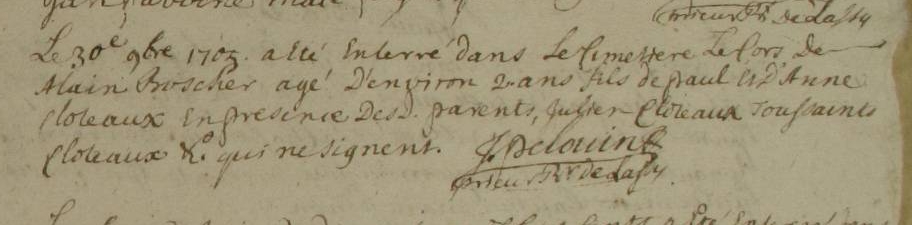 prieur Rr De Lassy
Le 30e 9bre 1705. a Eté Enterré dans Le Cimettere Le Cors De
Alain Roscher agé D'environ 2. ans fils de paul Et D'Anne
Cloteaux En presence Des d. parents, Julien Cloteaux Toussaints
Cloteaux &c. qui ne signent. J. Delouin
prieur Rr de Lassy.